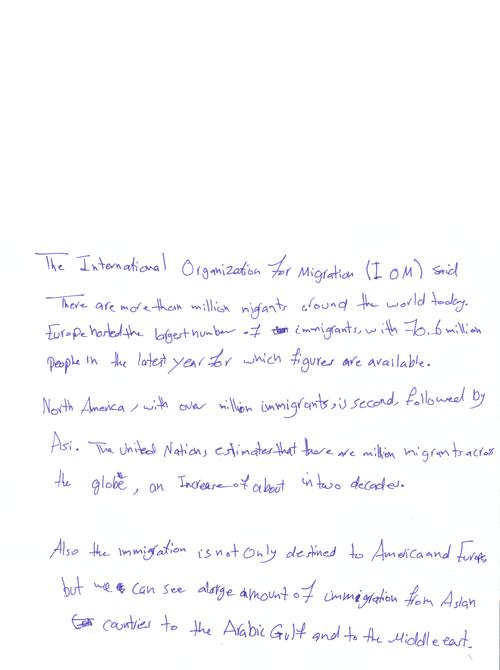 The International Organization For Migration (IOM) said
There are more than million migrants around the world today.
Europe hosted the largest number of immigrants, with 70.6 million
people in the latest year for which figures are available.
North America, with over million immigrants, is second, followed by
Asi. The United Nations estimates that there are million migrants across
the globe, an Increase of about in two decades.
Also the immigration is not Only destined to America and Europe
but we can see a large amount of immigration from Asian
countries to the Arabic Gulf and to the Middle east.